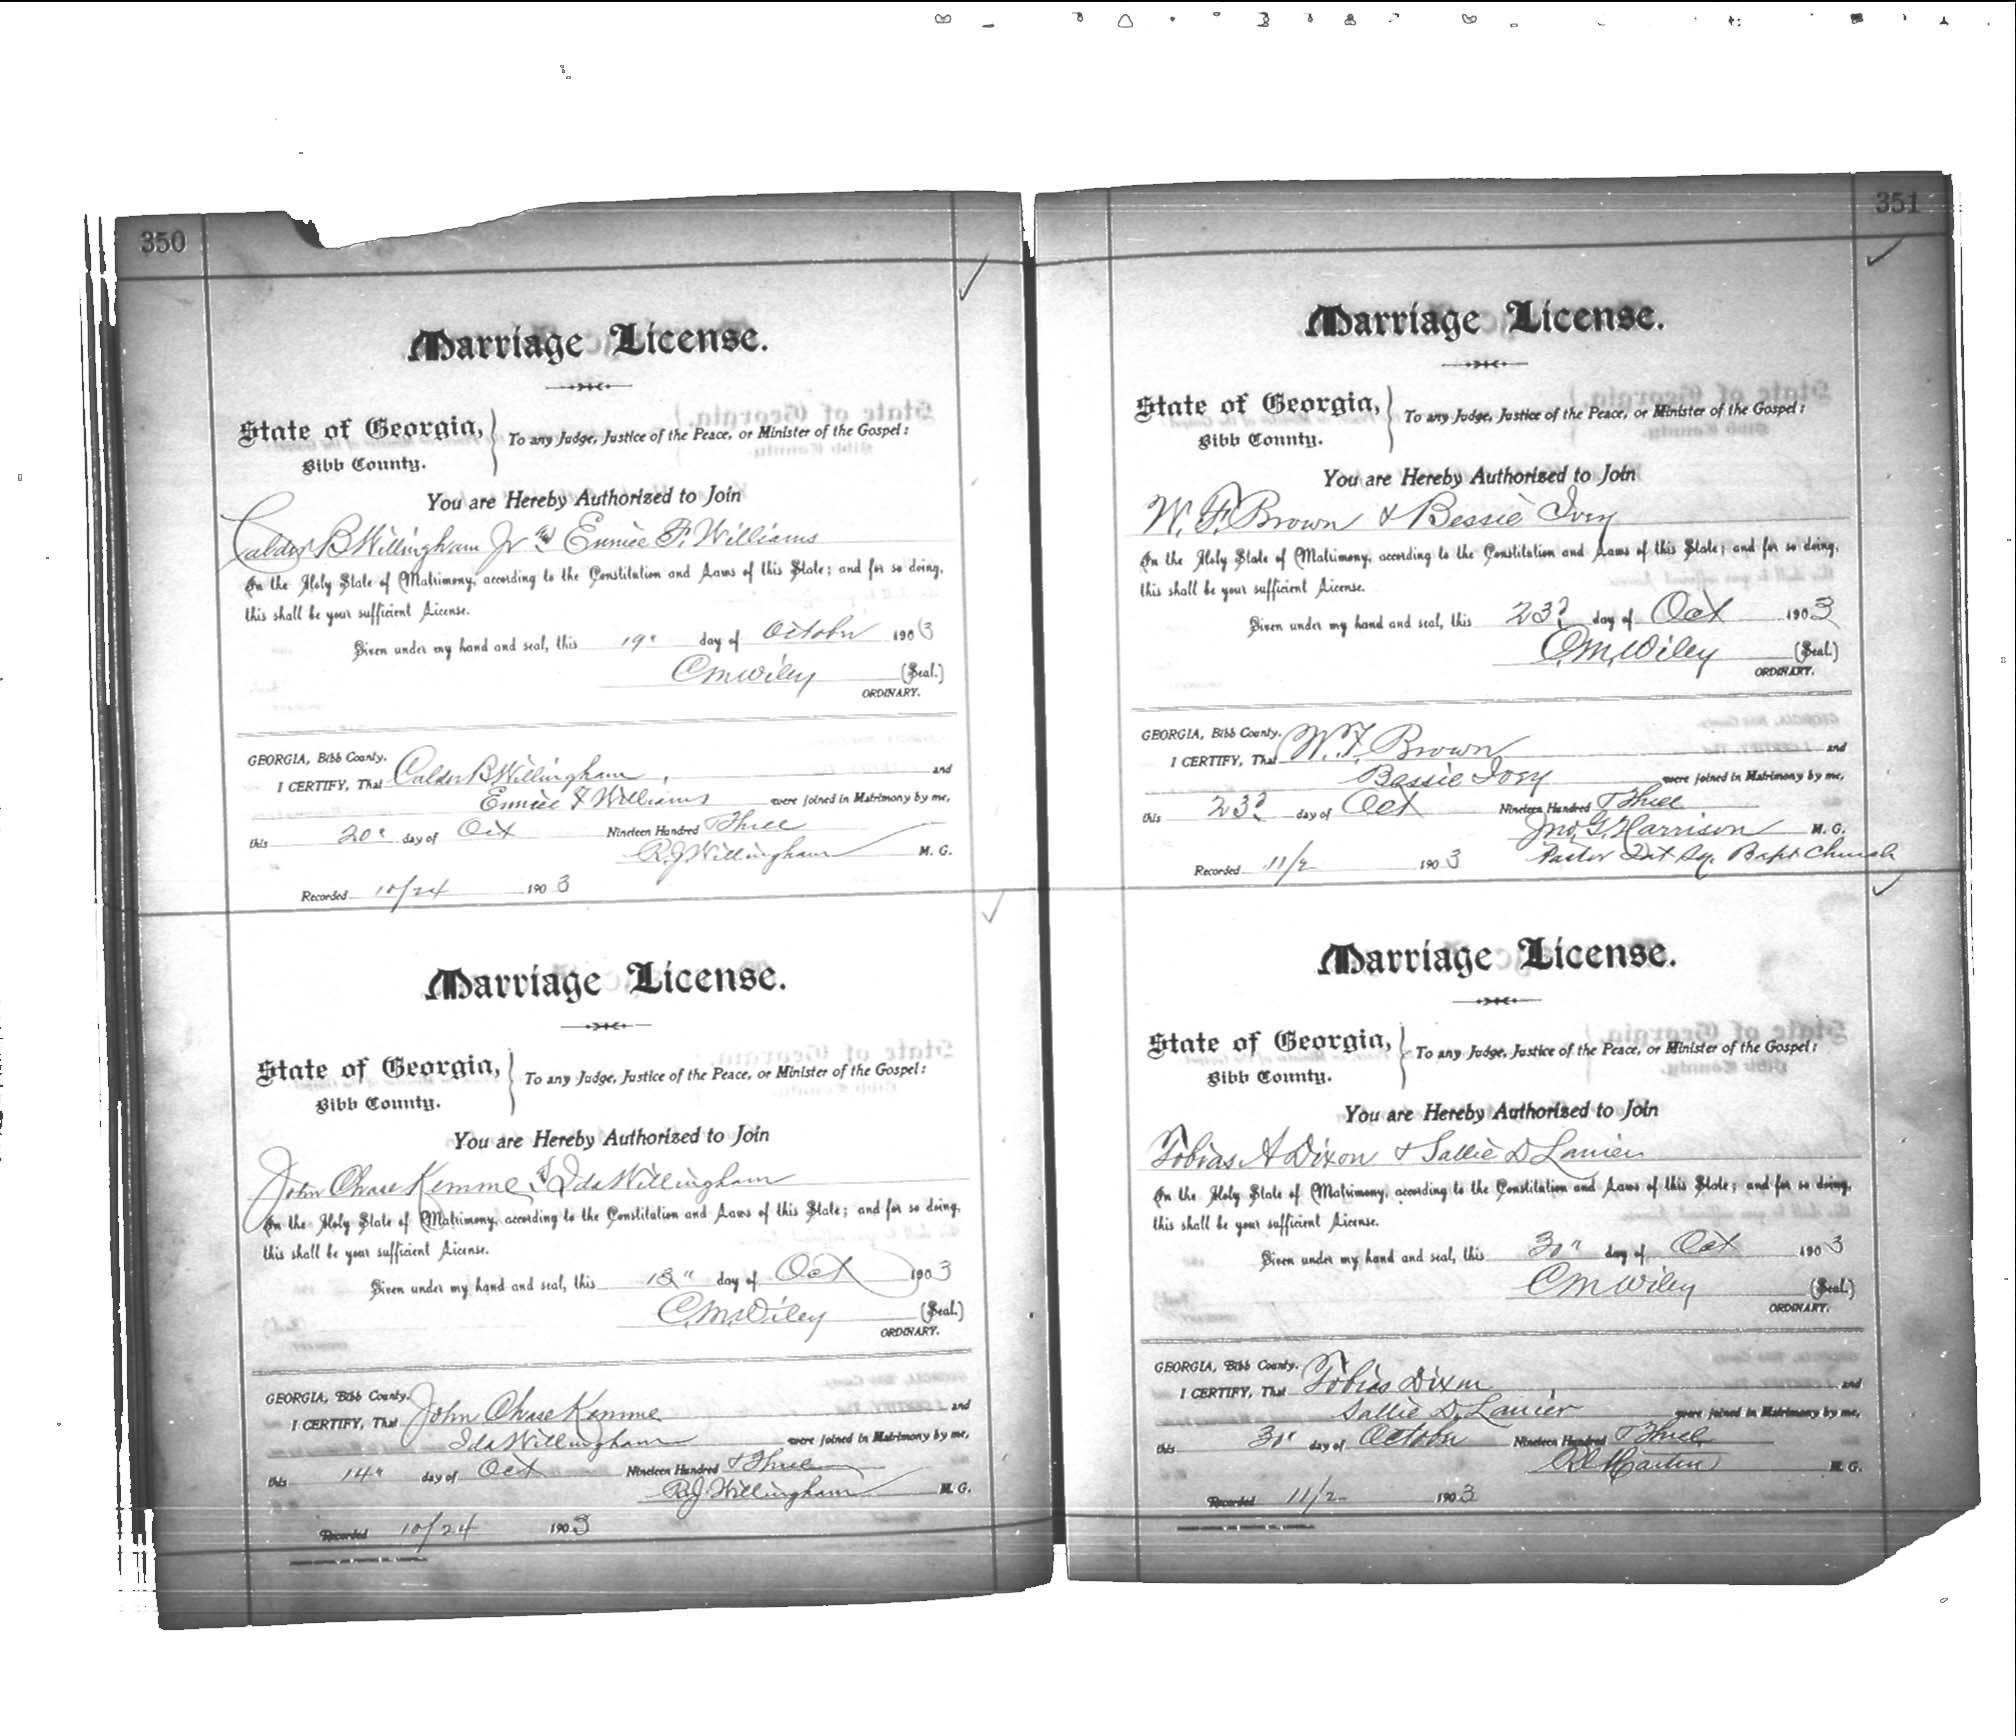 350
Marriage License.
State of Georgia,
Bibb County.
To any Judge, Justice of the Peace, or Minister of the Gospel:
You are Hereby Authorized to Join
Calder B Willingham Jr & Eunice F. Williams
In the Holy State of Matrimony, according to the Constitution and Laws of this State; and for so doing,
this shall be your sufficient License.
Given under my hand and seal, this 19" day of October 1903
C M Wiley (Seal.)
ORDINARY.
GEORGIA, Bibb County.
I CERTIFY, That Calder B Willingham and
Eunice F Williams were joined in Matrimony by me,
this 20" day of Oct Nineteen Hundred Three
R. J Willingham M. G.
Recorded 10/24 1903
Marriage License.
State of Georgia,
Bibb County.
To any Judge, Justice of the Peace, or Minister of the Gospel:
You are Hereby Authorized to Join
John Chase Kemme & Ida Willingham
In the Holy State of Matrimony, according to the Constitution and Laws of this State; and for so doing,
this shall be your sufficient License.
Given under my hand and seal, this day of Oct 1903
C. M. Wiley (Seal.)
ORDINARY.
GEORGIA, Bibb County.
I CERTIFY, That John Chase Kemme and
Ida Willingham were joined in Matrimony by me,
this 14" day of Oct Nineteen Hundred & Three
R. J. Willingham M. G.
Recorded 10/24 1903
351
Marriage License.
State of Georgia,
Bibb County.
To any Judge, Justice of the Peace, or Minister of the Gospel:
You are Hereby Authorized to Join
W. F. Brown & Bessie Ivey
In the Holy State of Matrimony, according to the Constitution and Laws of this State; and for so doing,
this shall be your sufficient License.
Given under my hand and seal, this 23d day of Oct 1903
C. M. Wiley (Seal.)
ORDINARY.
GEORGIA, Bibb County.
I CERTIFY, That W. F. Brown and
Bessie Ivey were joined in Matrimony by me,
this 23d day of Oct Nineteen Hundred Three
Jno. G. Harrison M. G.
Pastor Tat Sq. Bapt Church
Recorded 11/2 1903
Marriage License.
State of Georgia,
Bibb County.
To any Judge, Justice of the Peace, or Minister of the Gospel:
You are Hereby Authorized to Join
Tobias A Dixon & Sallie D Lanier
In the Holy State of Matrimony, according to the Constitution and Laws of this State; and for so doing,
this shall be your sufficient License.
Given under my hand and seal, this 30" day of Oct 1903
C M Wiley (Seal.)
ORDINARY.
GEORGIA, Bibb County.
I CERTIFY, That Tobias Dixon and
Sallie D. Lanier were joined in Matrimony by me,
this 30" day of October Nineteen Hundred Three
Martin M. G.
Recorded 11/2 1903